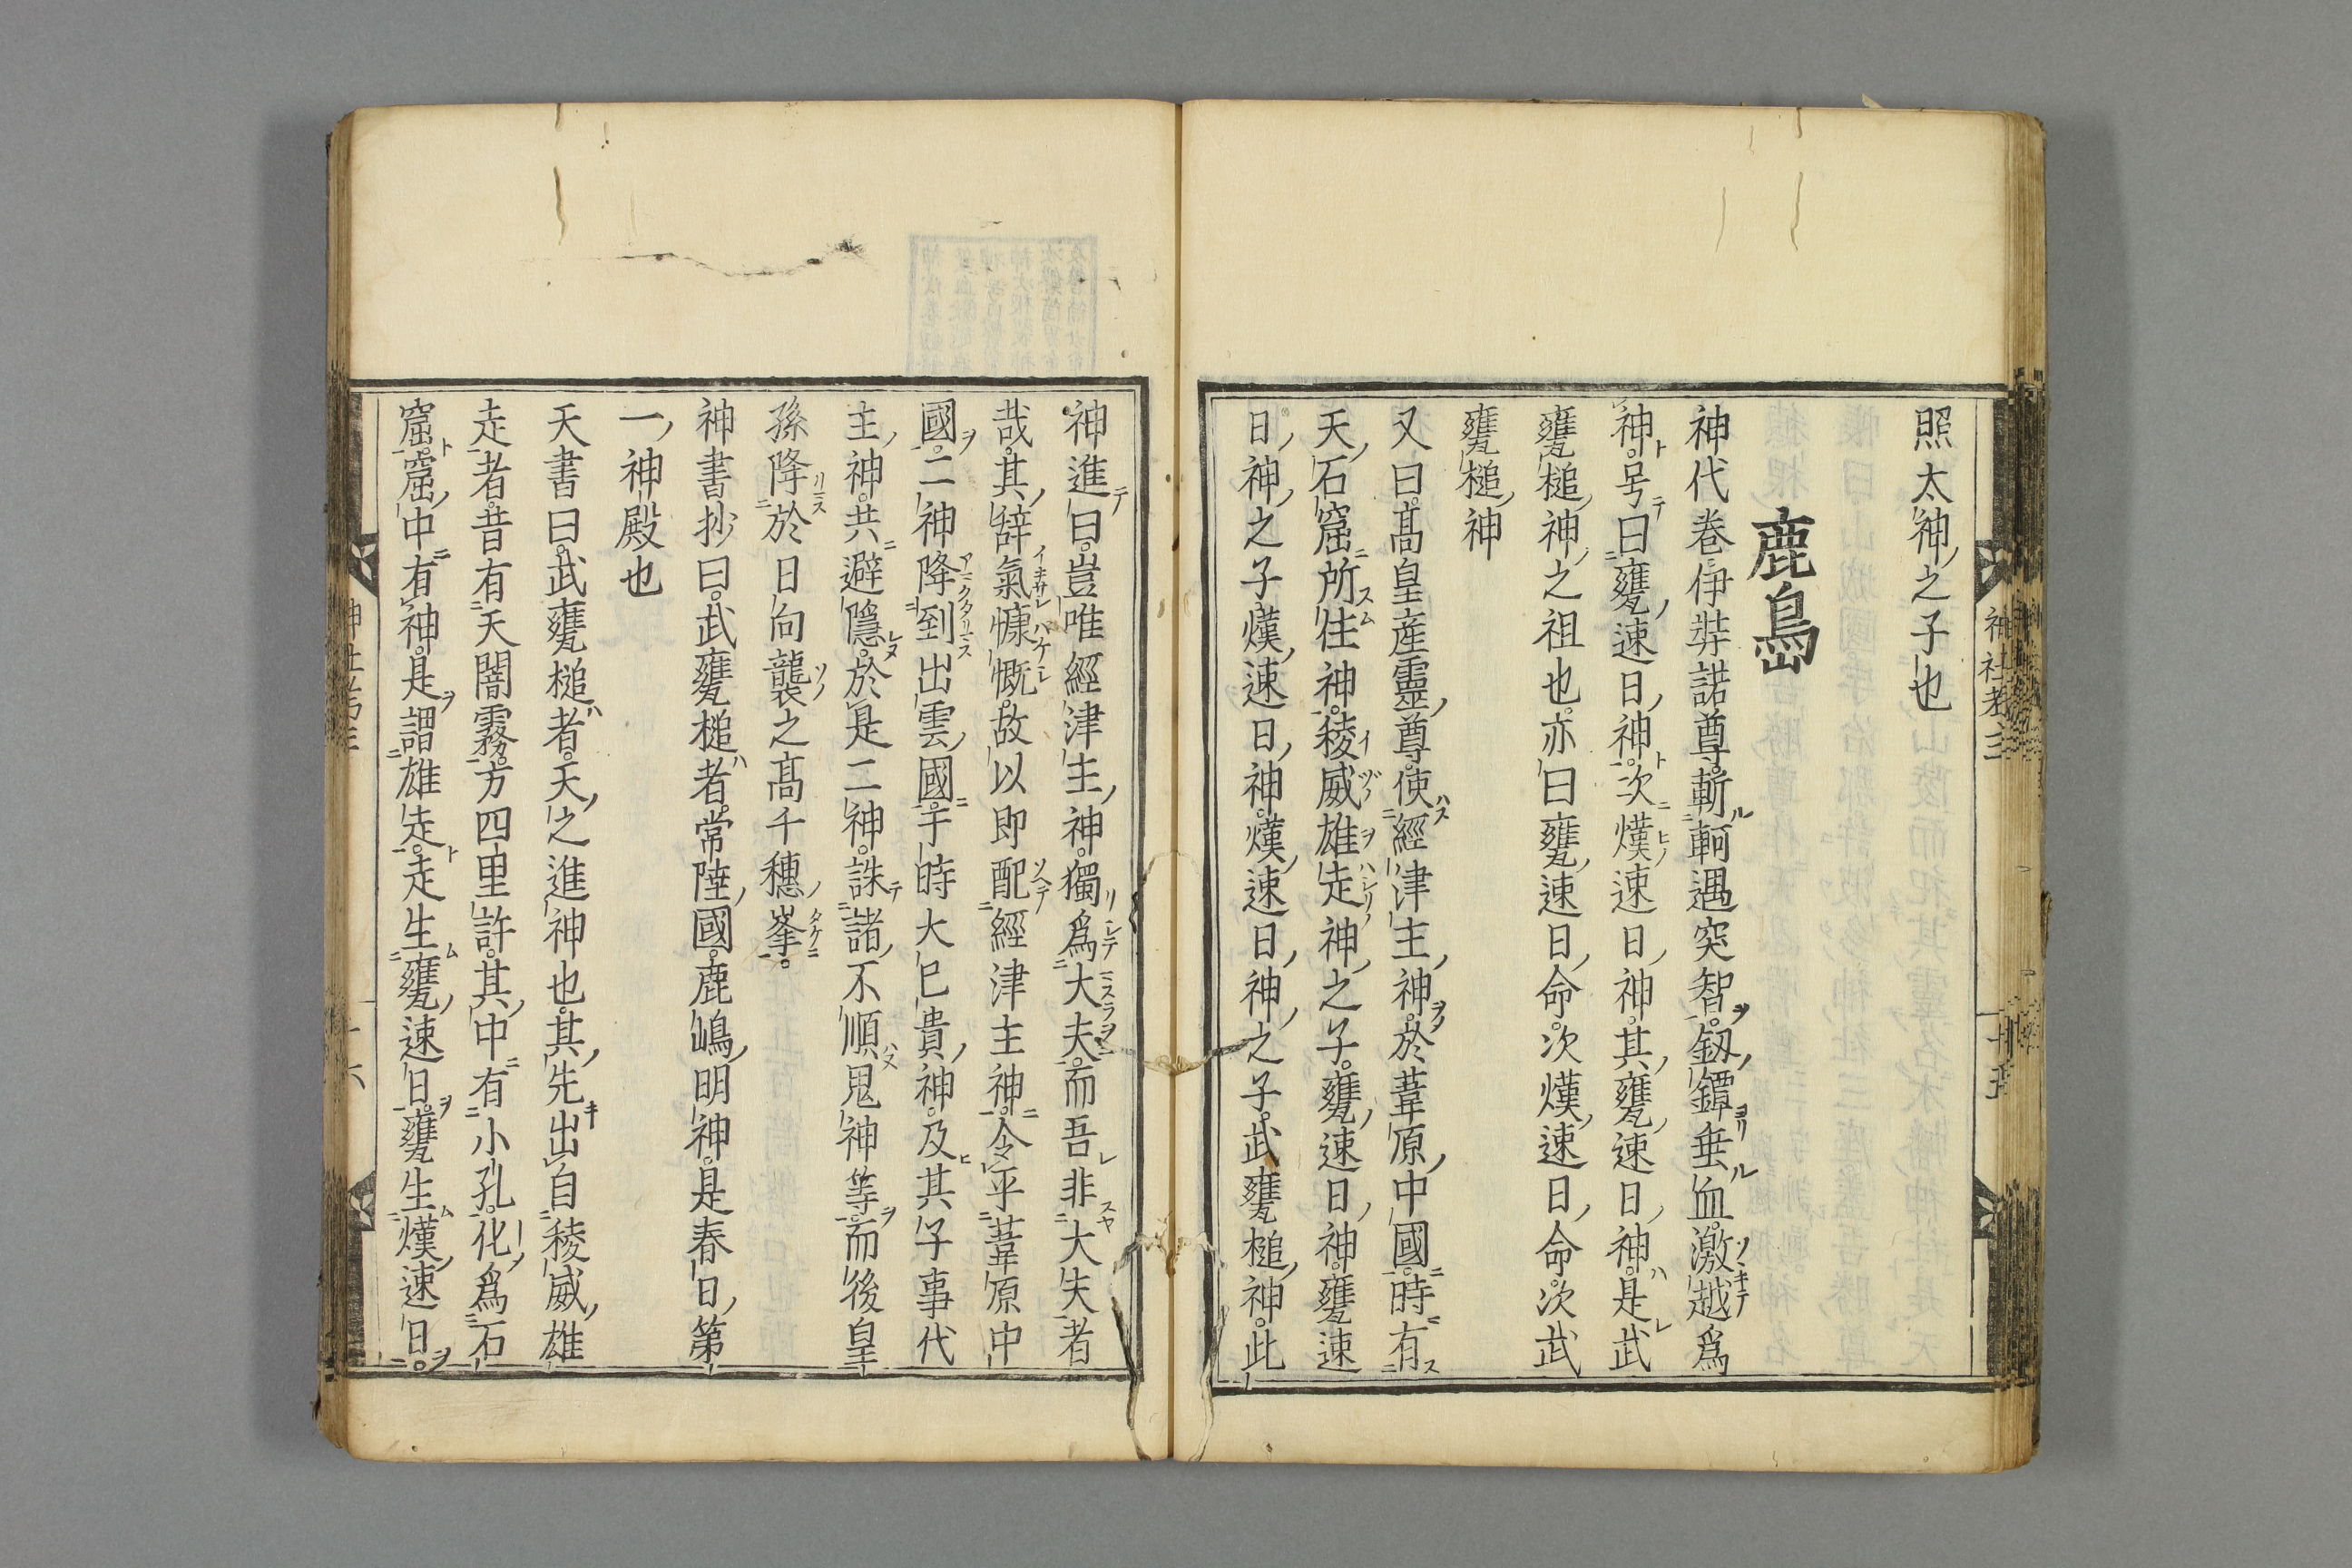 照太神之子也
鹿島
神代巻伊弉諾尊斬軻遇突智釼鐔垂血激越爲
神号曰甕速日神次熯速日神其甕速日神是武
甕槌神之祖也亦曰甕速日命次熯速日命次武
甕槌神
又曰髙皇産靈尊使經津主神於葦原中國時有
天石窟所住神稜威雄走神之子甕速日神甕速
日神之子熯速日神熯速日神之子武甕槌神此
神進曰豈唯經津主神獨爲大夫而吾非大夫者
哉其辞氣慷慨故以即配經津主神令平葦原中
國二神降到出雲國于時大己貴神及其子事代
主神共避隱於是二神誅諸不順鬼神等而後皇
孫降於日向襲之髙千穗峯
神書抄曰武甕槌者常陸國鹿嶋明神是春日第
一神殿也
天書曰武甕槌者天之進神也其先出自稜威雄
走者昔有天闇霧方四里許其中有小孔化爲石
窟窟中有神是謂雄走走生甕速日甕生熯速日
神社考三
十五
十六